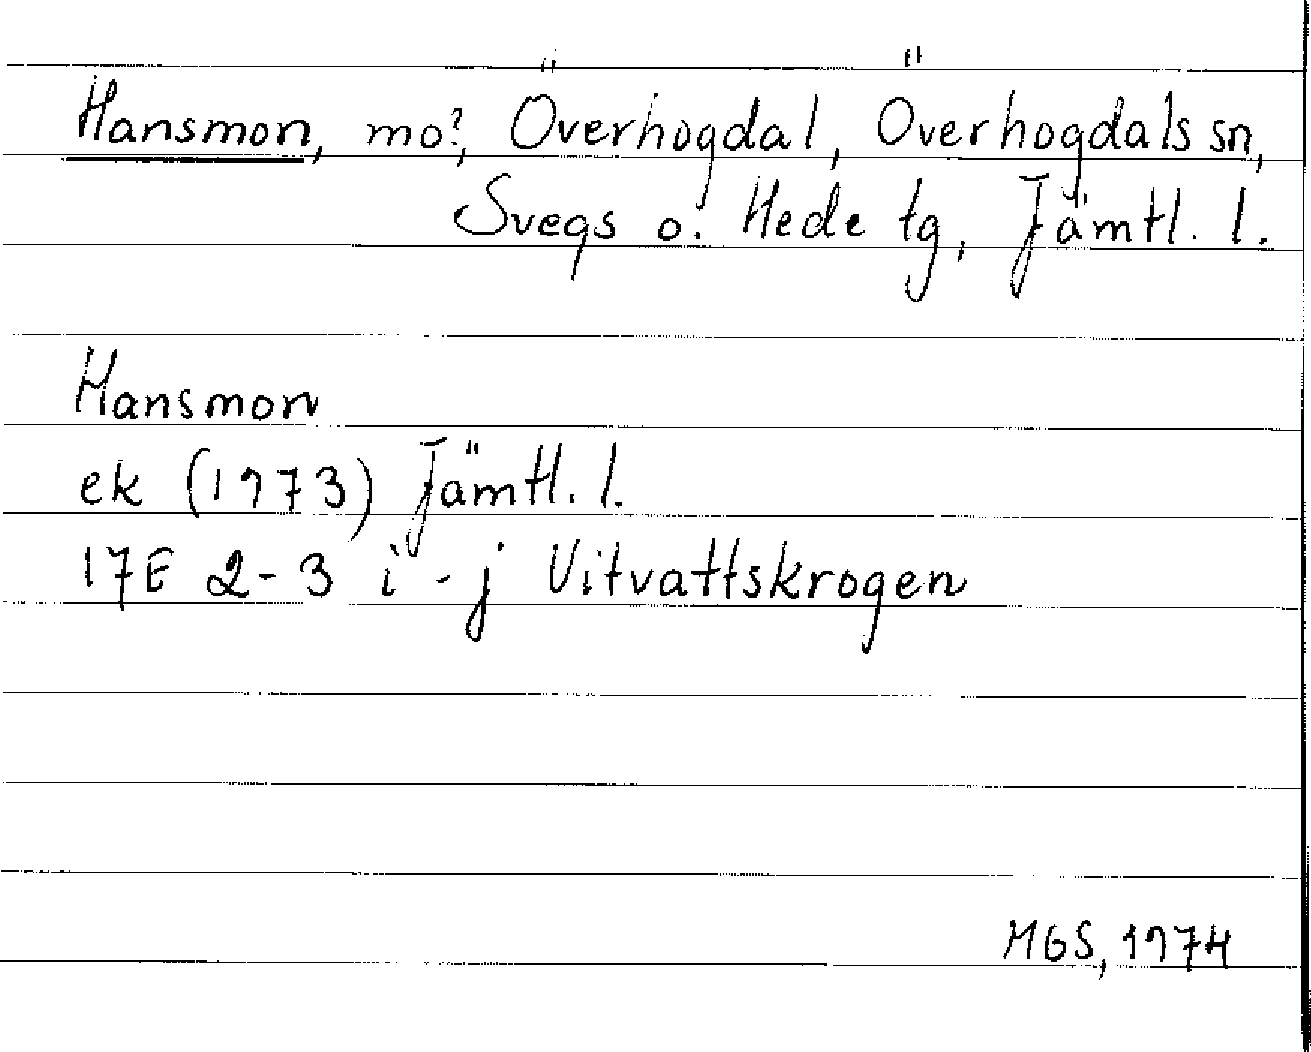 Hansmon, mo?, Överhogdal, Överhogdals sn,
Svegs o. Hede tg, Jämtl. l.
Hansmon
ek (1973) Jämtl. l.
17E 2-3 i-j Vitvattskrogen
MGS, 1974